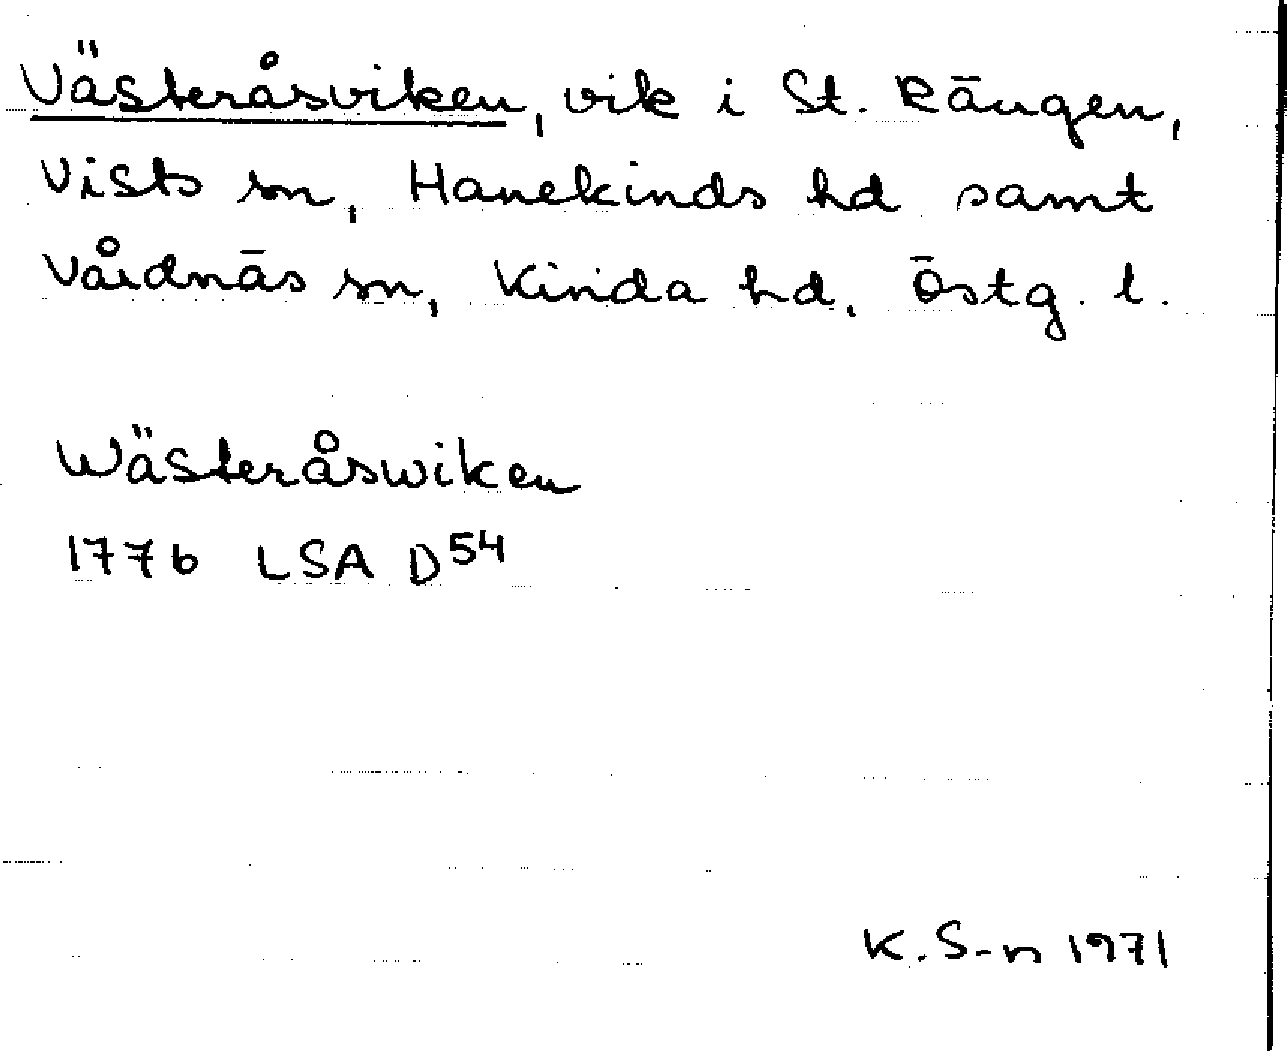 Västeråsviken, vik i St. Rängen,
Vists sn, Hanekinds hd samt
Vårdnäs sn, Kinda hd, Östg. l.
Wästeråswiken
1776 LSA D54
K. S-n 1971